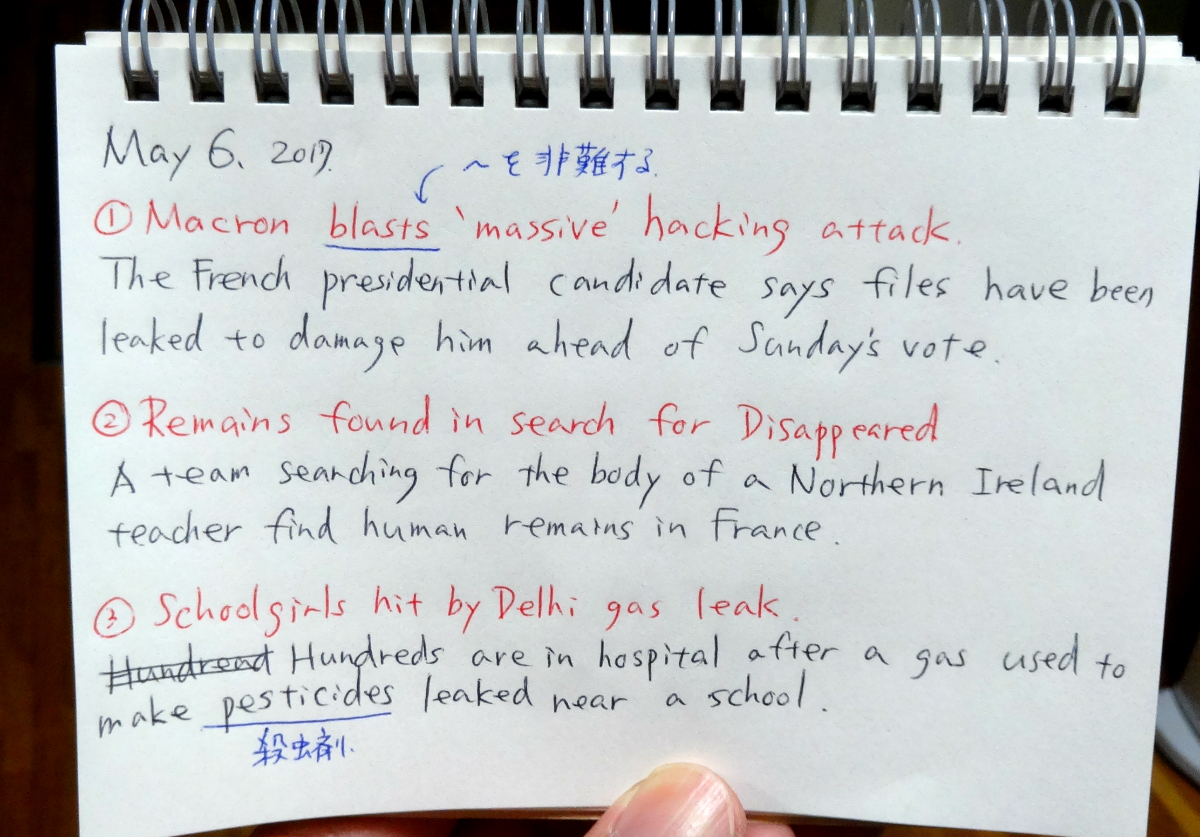 May 6. 2017.
~を非難する.
① Macron blasts 'massive' hacking attack.
The French presidential candidate says files have been
leaked to damage him ahead of Sunday's vote.
② Remains found in search for Disappeared
A team searching for the body of a Northern Ireland
teacher find human remains in France.
③ Schoolgirls hit by Delhi gas leak.
Hundread Hundreds are in hospital after a gas used to
make pesticides leaked near a school.
殺虫剤.